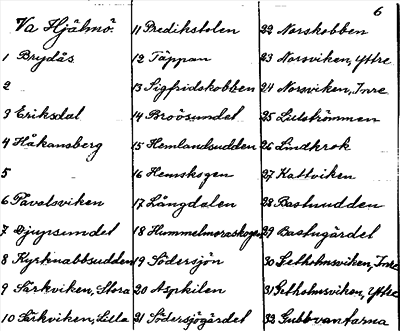 6
Va Hjälmö.
1 Brydås
2
3 Eriksdal
4 Håkansberg
5
6 Tavelsviken
7 Djupsundet
8 Kyrknabbsudden
9 Särkviken, Stora
10 Särkviken, Lilla
11 Predikstolen
12 Täppan
13 Sigfridskobben
14 Broösundet
15 Hemlandsudden
16 Hemskogen
17 Långdalen
18 Hummelmoraskogen
19 Södersjön
20 Aspkilen
21 Södersjögärdet
22 Norskobben
23 Norsviken, Yttre
24 Norsviken, Inre
25 Lillströmmen
26 Lindkrok
27 Kattviken
28 Bastuudden
29 Bastugärdet
30 Getholmsviken, Inre
31 Getholmsviken, Yttre
32 Gubbvantarna